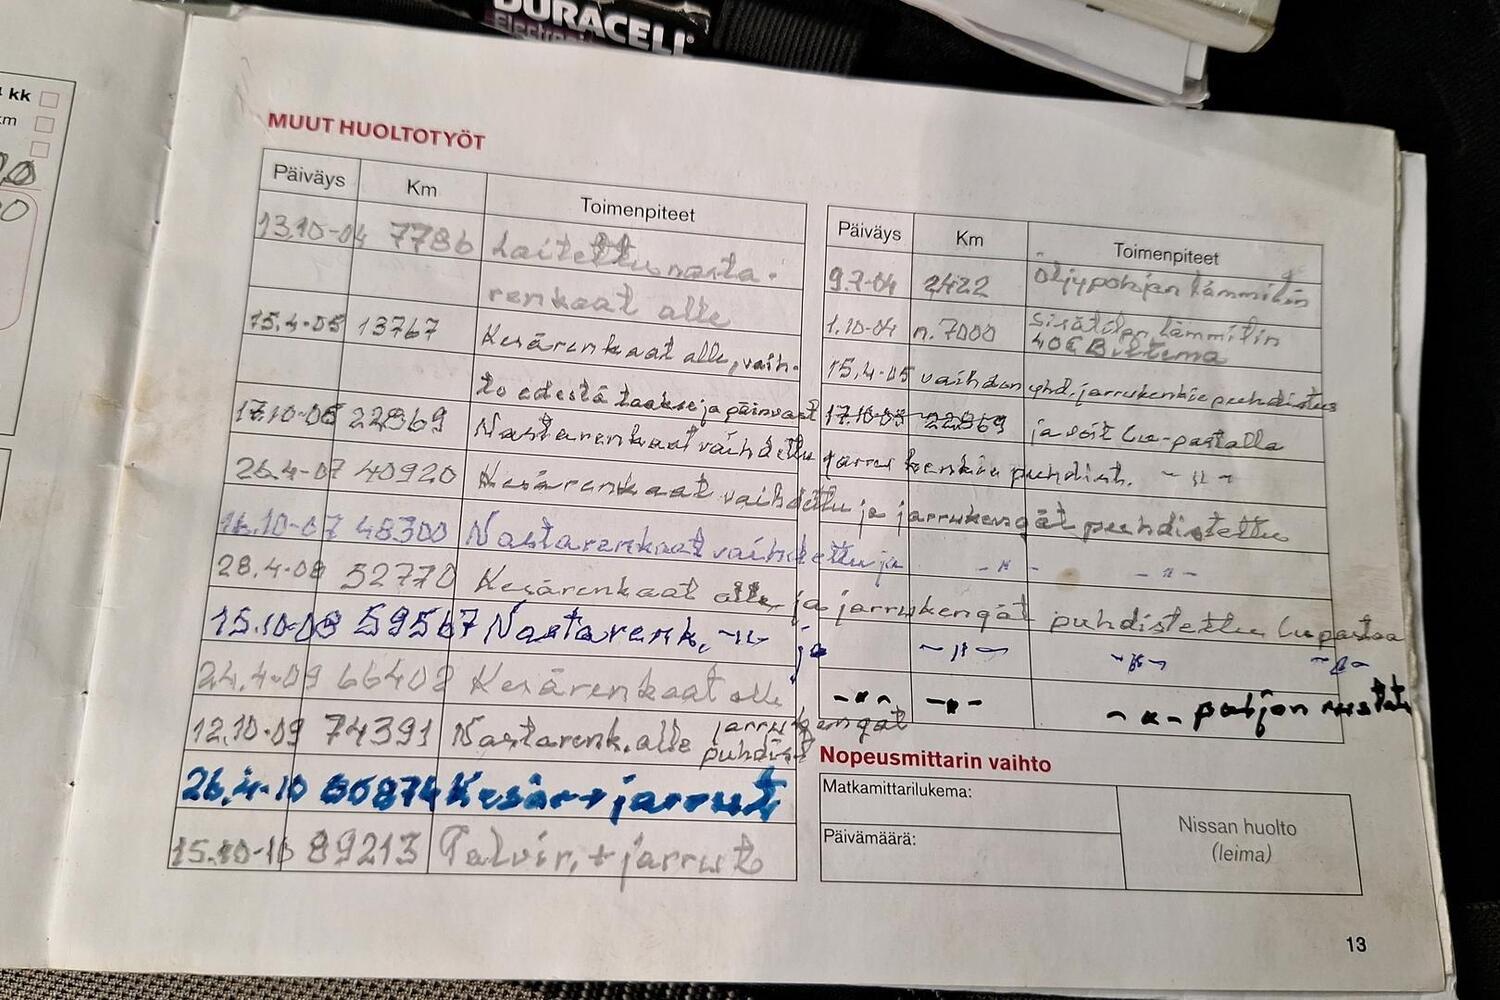 DURACELL
kk
km
MUUT HUOLTOTYÖT
Päiväys Km Toimenpiteet
13.10-04 7786 Laitettu nasta-
renkaat alle
15.4-05 13767 Kesärenkaat alle, vaih-
to edestä taakse ja päinvast
17.10-05 22869 Nastarenkaat vaihdettu
26.4-07 40920 Kesärenkaat vaihdettu ja jarrukengät puhdistettu
16.10-07 48300 Nastarenkaat vaihdettu ja -"- -"-
28.4-08 52770 Kesärenkaat alle, ja jarrukengät puhdistettu
15.10-08 59567 Nastarenk. -"- ja -"- -"- -"-
24.4-09 66402 Kesärenkaat alle
12.10-09 74391 Nastarenk. alle jarrukengät
puhdist
26.4-10 80874 Kesär + jarrut
15.10-10 89213 Talvir. + jarrut
Päiväys Km Toimenpiteet
9.7-04 2422 öljypohjan lämmitin
1.10-04 n. 7000 Sisätilan lämmitin
40€ Biltema
15.4-05 vaihdon yhd. jarrukenkie puhdistus
17.10-05 22869 ja voit Cu-pastalla
jarru kenkie puhdist. -"-
-"- -"- -"- pohjan ruostets
Nopeusmittarin vaihto
Matkamittarilukema:
Päivämäärä:
Nissan huolto
(leima)
13